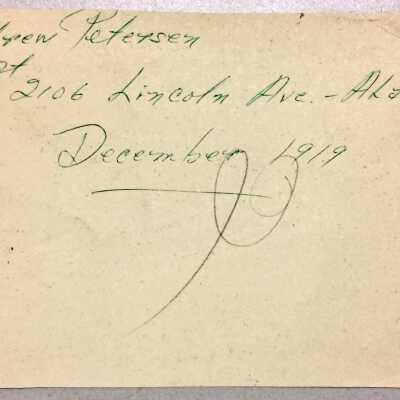 drew Petersen
at
2106 Lincoln Ave. - Ala
December 1919